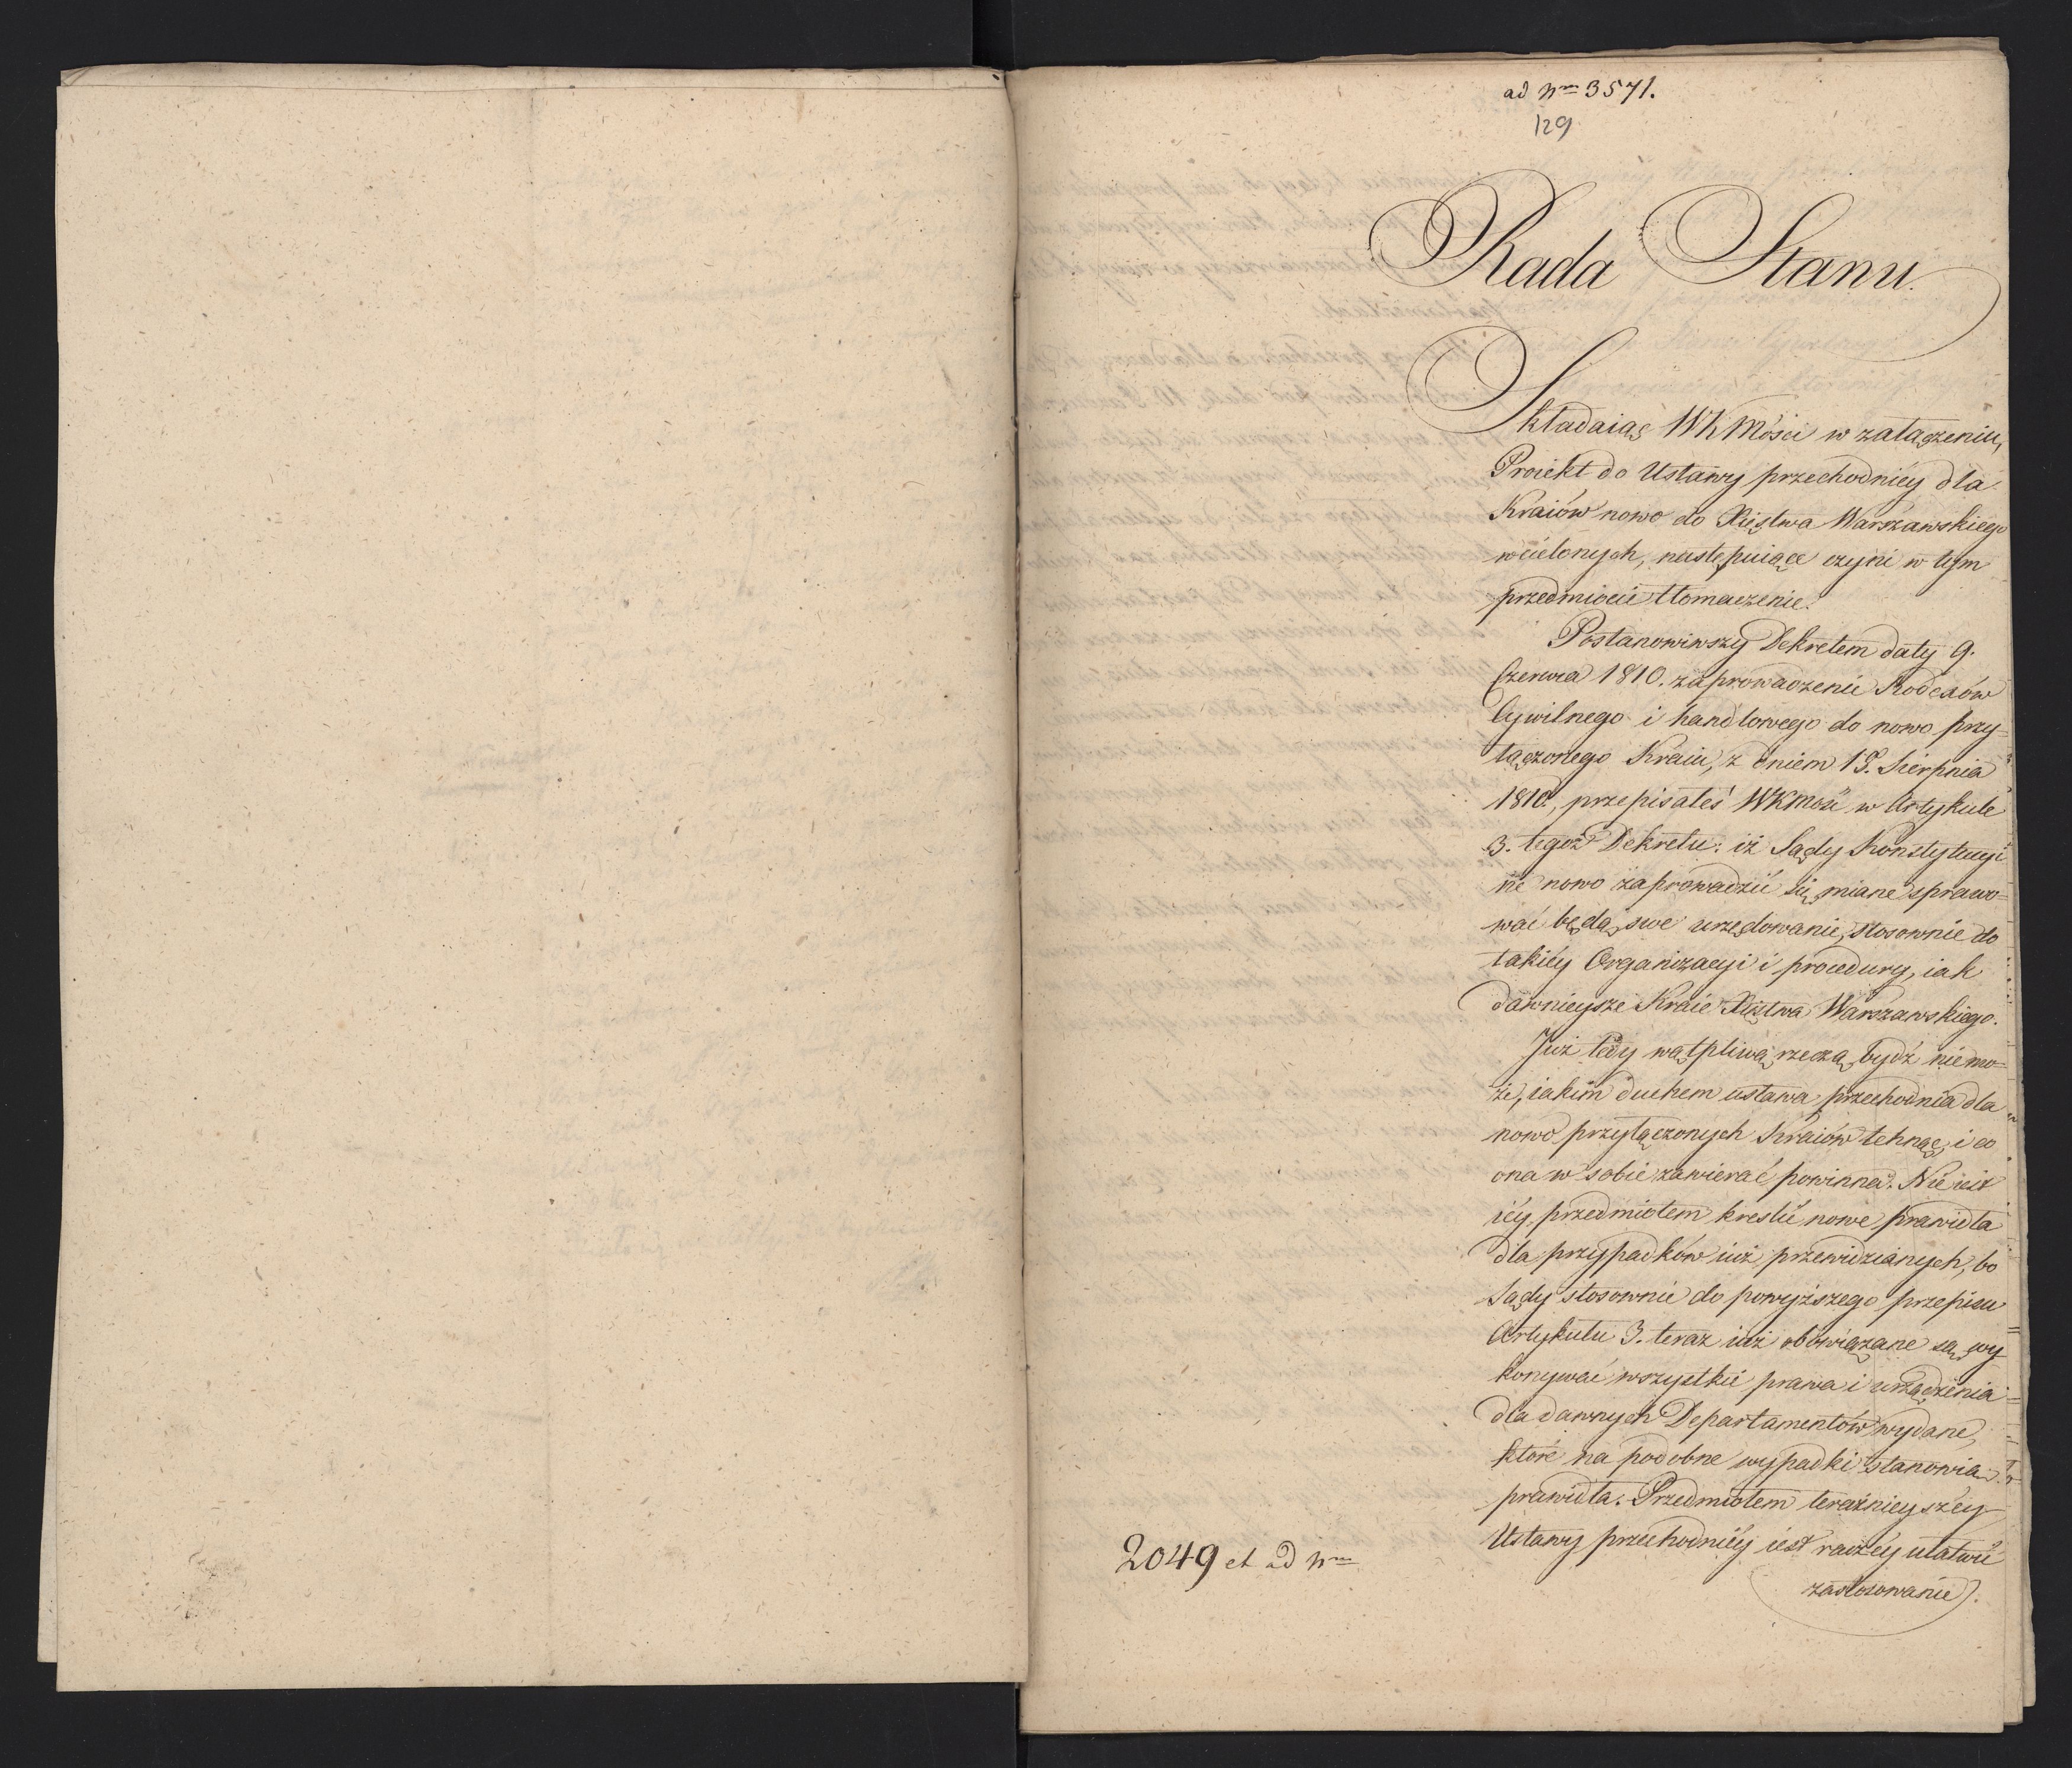 ad Nrm 3571.
129
Rada Stanu.
Składaiąc WKMości w załączeniu,
Proiekt do Ustawy przechodniéy dla
Kraiów nowo do Xięstwa Warszawskiego
wcielonych, następuiące czyni w tym
przedmiocie tłomaczenie.
Postanowiwszy Dekretem daty 9.
Czerwca 1810. zaprowadzenie Kodexów
Cywilnego i handlowego do nowo przy=
łączonego Kraiu, z dniem 15. Sierpnia
1810., przepisałeś WKMość w Artykule
3. tegoż Dekretu: iż Sądy Konstytucyi
ne nowo zaprowadzić się miane sprawo=
wać będą swe urzędowanie, stosownie do
takiéy Organizacyi i procedury, iak
dawnieysze Kraie Xięstwa Warszawskiego.
Już tedy wątpliwą rzeczą bydź niemo=
że, iakim duchem ustawa przechodnia dla
nowo przyłączonych Kraiów tchnąć, i co
ona w sobie zawierać powinna. Nie iest
iéy przedmiotem kreslić nowe prawidła
dla przypadków iuż przewidzianych, bo
Sądy stosownie do powyższego przepisu
Artykułu 3. teraz iuż obowiązane są wy
konywać wszystkie prawa i urządzenia
dla dawnych Departamentów wydane,
które na podobne wypadki stanowią
prawidła. Przedmiotem teraźnieyszéy
Ustawy przechodniéy iest raczéy ułatwić
zastosowanie
2049 et ad Nrm